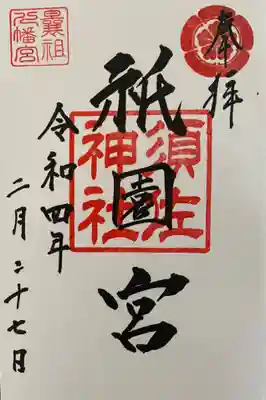 奉拝
祇園宮
須佐
神社
令和四年
二月二十七日
曩祖
八幡宮